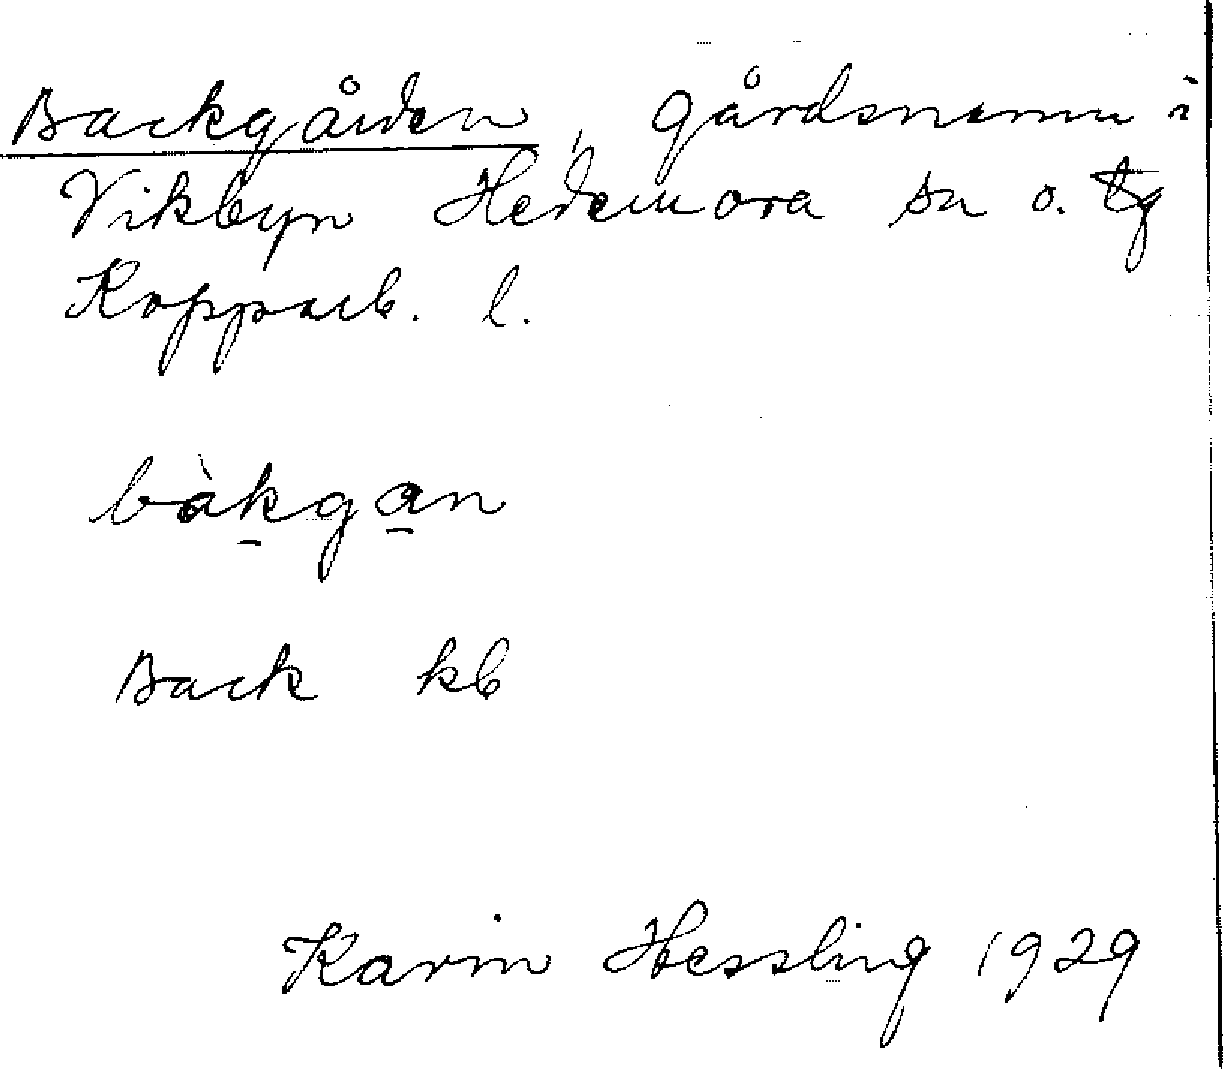 Backgården, gårdsnamn i
Vikbyn Hedemora sn o. tg
Kopparb. l.
bàk̠ga̠n
Back kb
Karin Hessling 1929